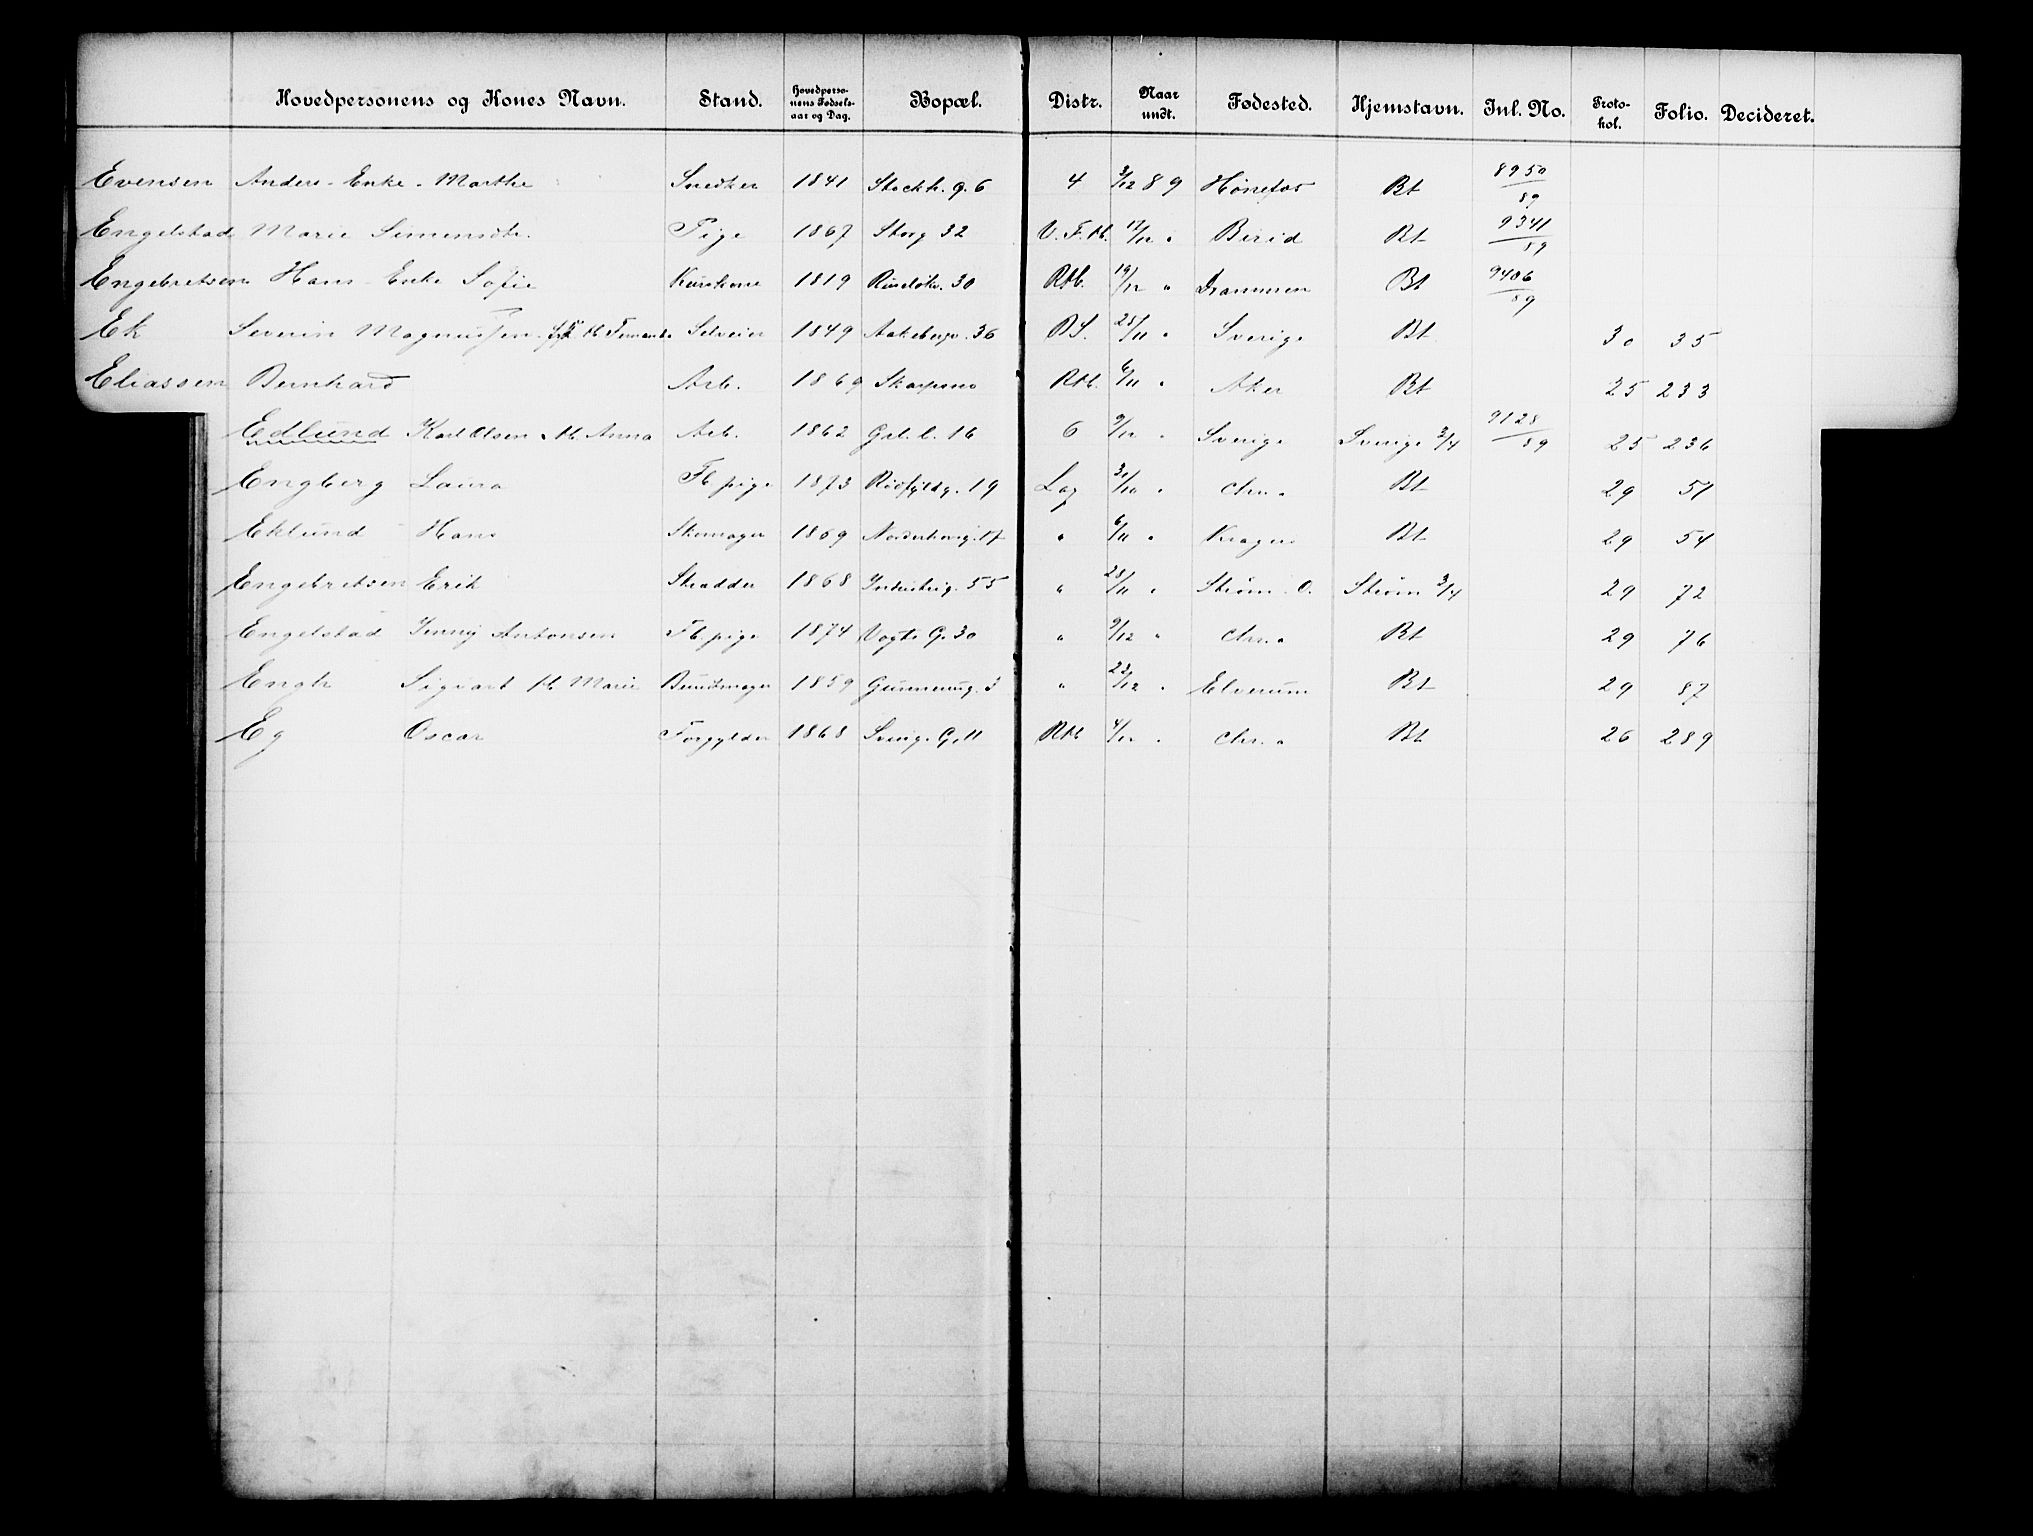 Hovedpersonens og Kones Navn. Stand. Hovedpersonens Fødselsaar og Dag. Bopæl. Distr. Naar undt. Fødested. Hjemstavn. Inl. No. Protokol. Folio. Decideret.
Evensen Anders - Enke - Marthe Snedker 1841 Stockh. g. 6 4 3/12 89 Hønefos Bt 8950/89
Engelstad Marie Simensdtr. Pige 1867 Storg 32 V. F. H. 17/12 " Birid Bt 9341/89
Engebretsen Hans - Enke Sofie 1819 30 Rtb. 19/12 " Drammen Bt 9406/89
Ek Severin Magnussen 1849 Aakebergv. 36 BS. 25/11 " Sverige Bt 30 35
Eliassen Bernhard Arb. 1869 Skarpsno Rtb. 6/11 " Aker Bt 25 233
Edlund Karl Olsen & H. Anna Arb. 1862 Grl. l. 16 6 9/12 " Sverige Sverige 3/4 9128/89 25 236
Engberg Laura Fb. pige 1873 19 Lag 31/10 " Chr.a Bt 29 51
Eklund Hans Skomager 1869 Norderhovg. 17 " 6/11 " Kragerø Bt 29 54
Engebretsen Erik Skrædder 1868 Industrig. 55 " 28/11 " Strøm. O. Strøm 3/4 29 72
Engelstad Jenny Antonsen Fb. pige 1874 Vogts G. 30 " 9/12 " Chr.a Bt 29 76
Engh Sigvart H. Marie Buntmager 1859 Gunnerusg. 3 " 23/12 " Elverum Bt 29 87
Eg Oscar Forgylder 1868 Sverig. G. 11 Rtb 4/12 " Chr.a Bt 26 289